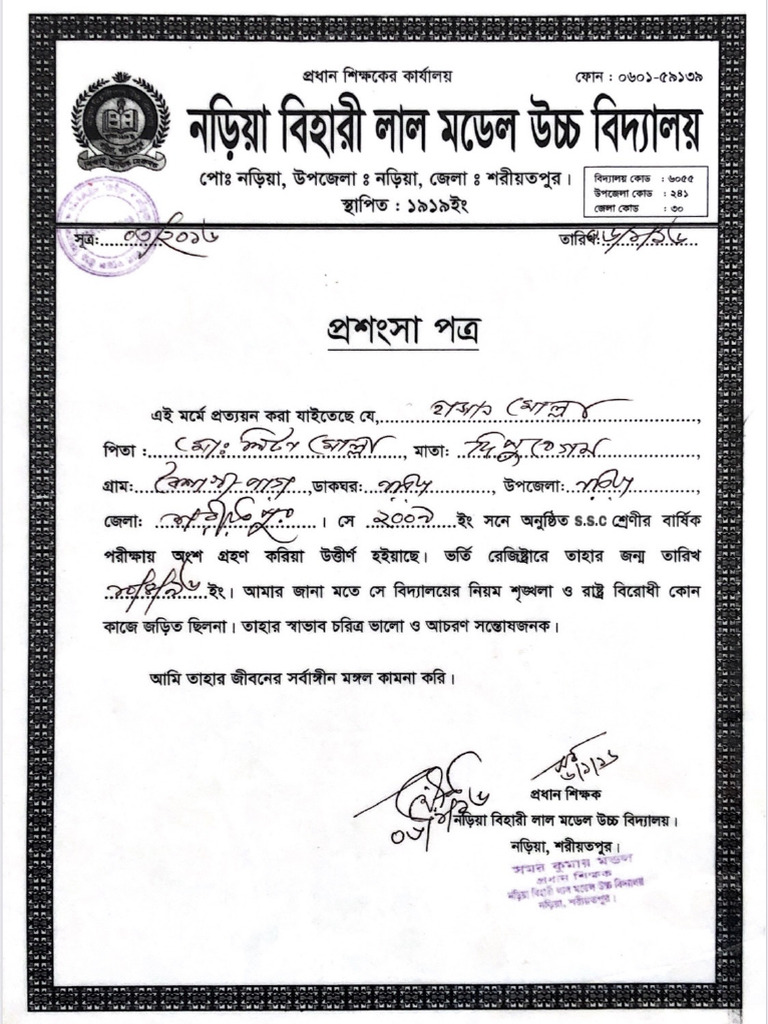 প্রধান শিক্ষকের কার্যালয়
ফোন : ০৬০১-৫৯১৩৯
নড়িয়া বিহারী লাল মডেল উচ্চ বিদ্যালয়
পোঃ নড়িয়া, উপজেলা ঃ নড়িয়া, জেলা ঃ শরীয়তপুর।
স্থাপিত : ১৯১৯ইং
বিদ্যালয় কোড : ৬০৫৫
উপজেলা কোড : ২৪১
জেলা কোড : ৩০
সূত্র:.......০৩/২০১৬
তারিখ:..৬/১/১৬..
প্রশংসা পত্র
এই মর্মে প্রত্যয়ন করা যাইতেছে যে,........হাসান মোল্লা........,
পিতা :......মোঃ লিটন মোল্লা......, মাতা: দিপু বেগম..........,
গ্রাম:...বৈশাখী পাড়া....,ডাকঘর:..নড়িয়া........, উপজেলা:..নড়িয়া........,
জেলা: শরীয়তপুর.....। সে ..২০০৯....ইং সনে অনুষ্ঠিত S.S.C শ্রেণীর বার্ষিক
পরীক্ষায় অংশ গ্রহণ করিয়া উত্তীর্ণ হইয়াছে। ভর্তি রেজিষ্ট্রারে তাহার জন্ম তারিখ
ইং। আমার জানা মতে সে বিদ্যালয়ের নিয়ম শৃঙ্খলা ও রাষ্ট্র বিরোধী কোন
কাজে জড়িত ছিলনা। তাহার স্বাভাব চরিত্র ভালো ও আচরণ সন্তোষজনক।
আমি তাহার জীবনের সর্বাঙ্গীন মঙ্গল কামনা করি।
৬/১/১৬
প্রধান শিক্ষক
নড়িয়া বিহারী লাল মডেল উচ্চ বিদ্যালয়।
নড়িয়া, শরীয়তপুর।
সমর কুমার মন্ডল
প্রধান শিক্ষক
নড়িয়া বিহারী লাল মডেল উচ্চ বিদ্যালয়
নড়িয়া, শরীয়তপুর।